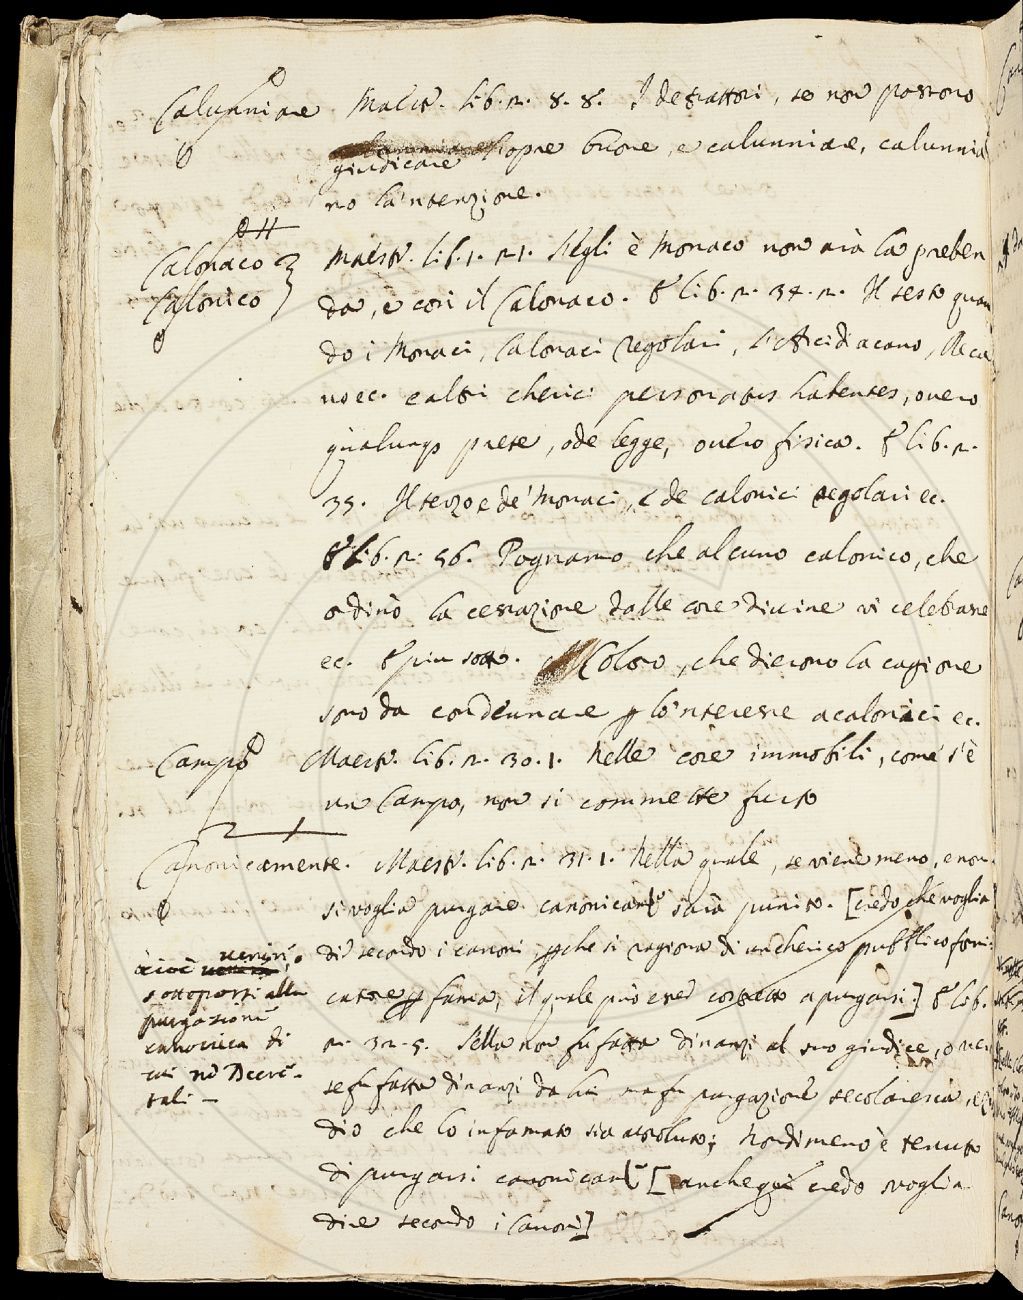 Calunniare Maestr. lib. 2. 8. 8. I detrattori, se non possono
giudicare l'opre buone, e calunniare, calunnia
no la'ntenzione.
Calonaco
Calonico
Maestr. lib. 1. 21. S'egli è Monaco non avà la preben
da, e così il Calonaco. E lib. 2. 34. 2. Il sesto quan
do i Monaci, Calonaci regolari, l'Arcidiacano, Deca
no ec. e altri cherici personatus habentes, overo
qualunq prete, ode legge, overo fisica. E lib. 2.
35. Il terzo è de' Monaci, e de calonici regolari ec.
E lib. 2. 56. Pognamo che alcuno calonico, che
ordinò la cessazione dalle cose divine vi celebrasse
ec. E piu sotto. Coloro, che dierono la cagione
sono da condennare p lo'nteresse a calonaci ec.
Campo Maestr. lib. 2. 30. 1. Nelle cose immobili, come s'è
un Campo, non si commette furto
Canonicamente. Maestr. lib. 2. 31. 1. Nella quale, se viene meno, e non
si voglia purgare canonicam.te sarà punito. [credo che voglia
dir secondo i canoni pche si ragiona di un cherico pubblico forni:
catore p fama, il quale può esser costretto a purgarsi.] E lib.
2. 32. 5. S'ella non fu fatta dinanzi al suo giudice, o ve.
se fu fatta dinanzi da lui ma fu purgazione secolaresca,
dio che lo infamato sia assoluto; Nondimeno è tenuto
di purgarsi canonicam.te [anche qui credo voglia
dire secondo i Canoni]
cioè venir,
sottoporsi alla
purgazione
canonica di
cui ne Decre-
tali –